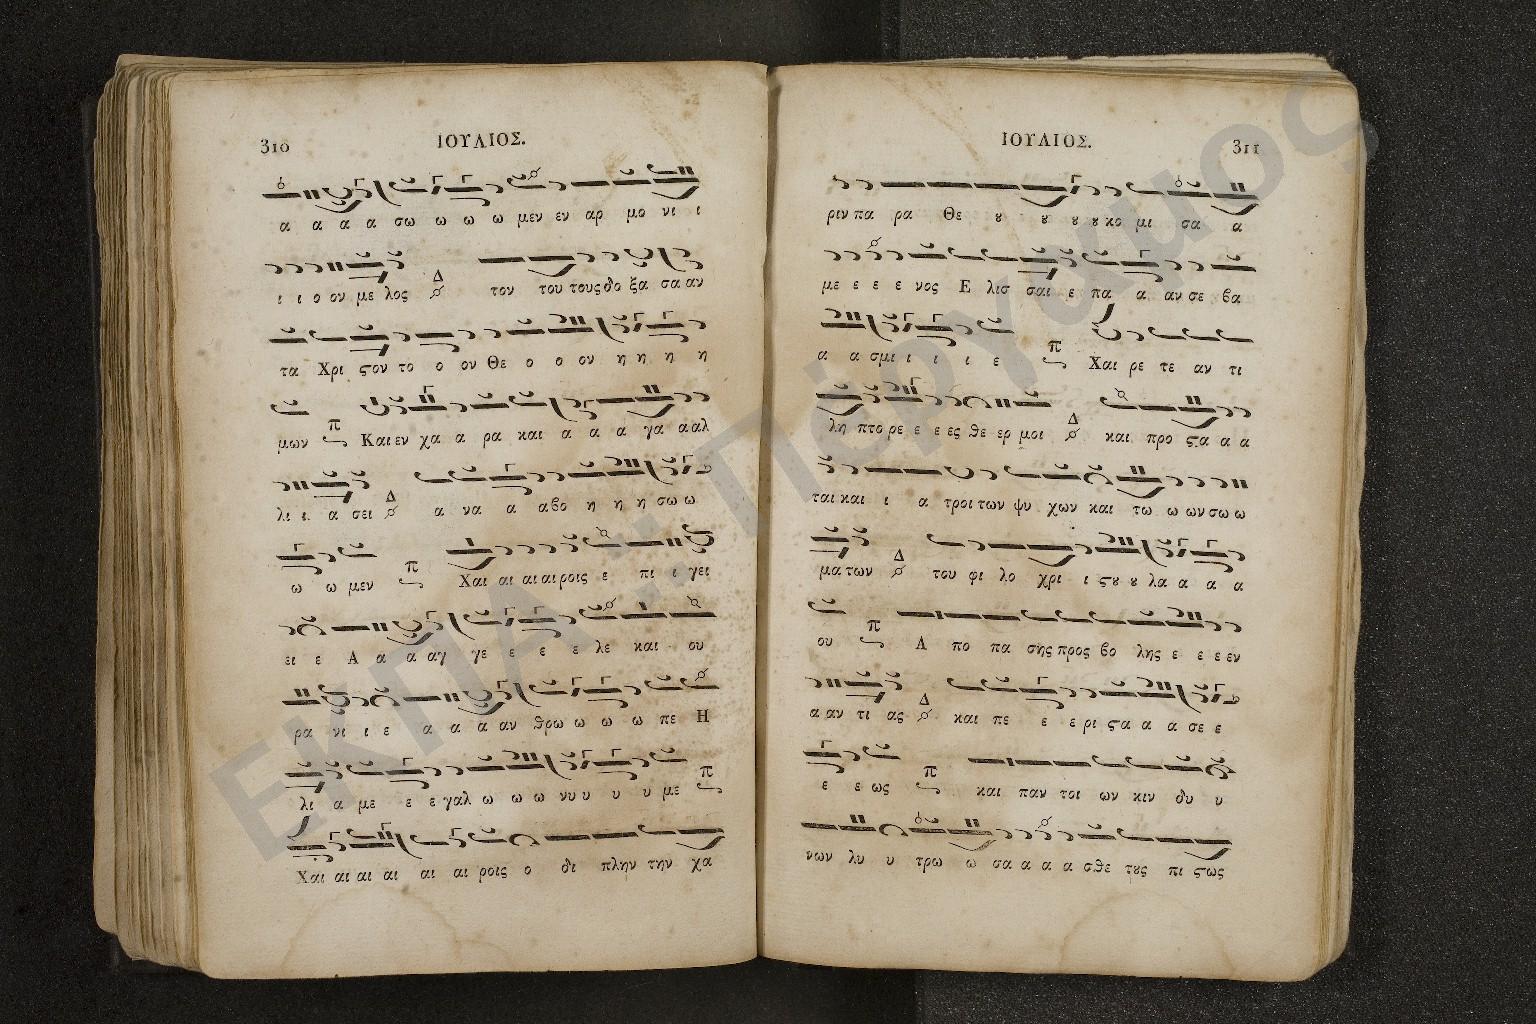 310 ΙΟΥΛΙΟΣ.
α α α α σω ω ω ω μεν εν αρ μο νι ι
ι ι ο ον με λος Δ τον του τους δο ξα σα αν
τα Χρι ϛον το ο ον Θε ο ο ον η η η η
μων π Και εν χα α ρα και α α α γα α αλ
λι ι α σει Δ α να α α βο η η η σω ω
ω ω μεν π Χαι αι αι αι ροις ε πι ι γει
ει ε Α α α αγ γε ε ε ε λε και ου
ρα νι ι ε α α α αν θρω ω ω ω πε Η
λι α με ε ε γαλ ω ω ω νυ υ υ υ με π
Χαι αι αι αι αι αι ροις ο δι πλην την χα
ΙΟΥΛΙΟΣ. 311
ριν πα ρα Θε ȣ ȣ ȣ ȣ κο μι σα α
με ε ε ε νος Ε λισ σαι ε πα α αν σε βα
α α σμι ι ι ι ε π Χαι ρε τε αν τι
λη πτο ρε ε ε ες θε ερ μοι Δ και προ ϛα α α
ται και ι α τροι των ψυ χων και τω ω ων σω ω
μα των Δ του φι λο χρι ι ϛȣ ȣ λα α α α
ου π Α πο πα σης προς βο λης ε ε ε εν
α αν τι ας Δ και πε ε ε ρι ϛα α α σε ε
ε ε ως π και παν τοι ων κιν δυ υ
νων λυ υ τρω ω σα α α α σθε τȣς πι ϛως
ΕΚΠΑ :: Πέργαμος